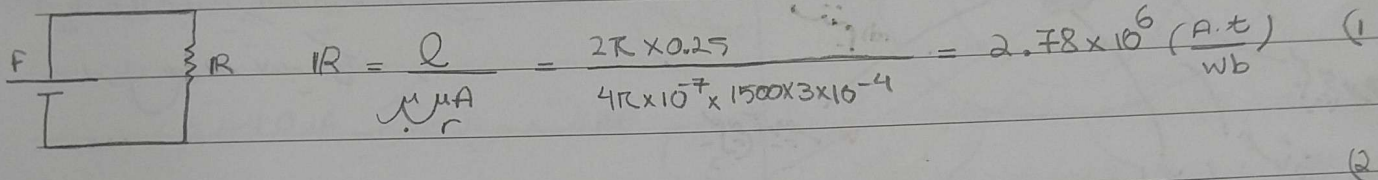 F R ℝ = l / μ. μr A = 2π × 0.25 / 4π×10⁻⁷ × 1500×3×10⁻⁴ = 2.78×10⁶ (A.t / Wb) (1
(2